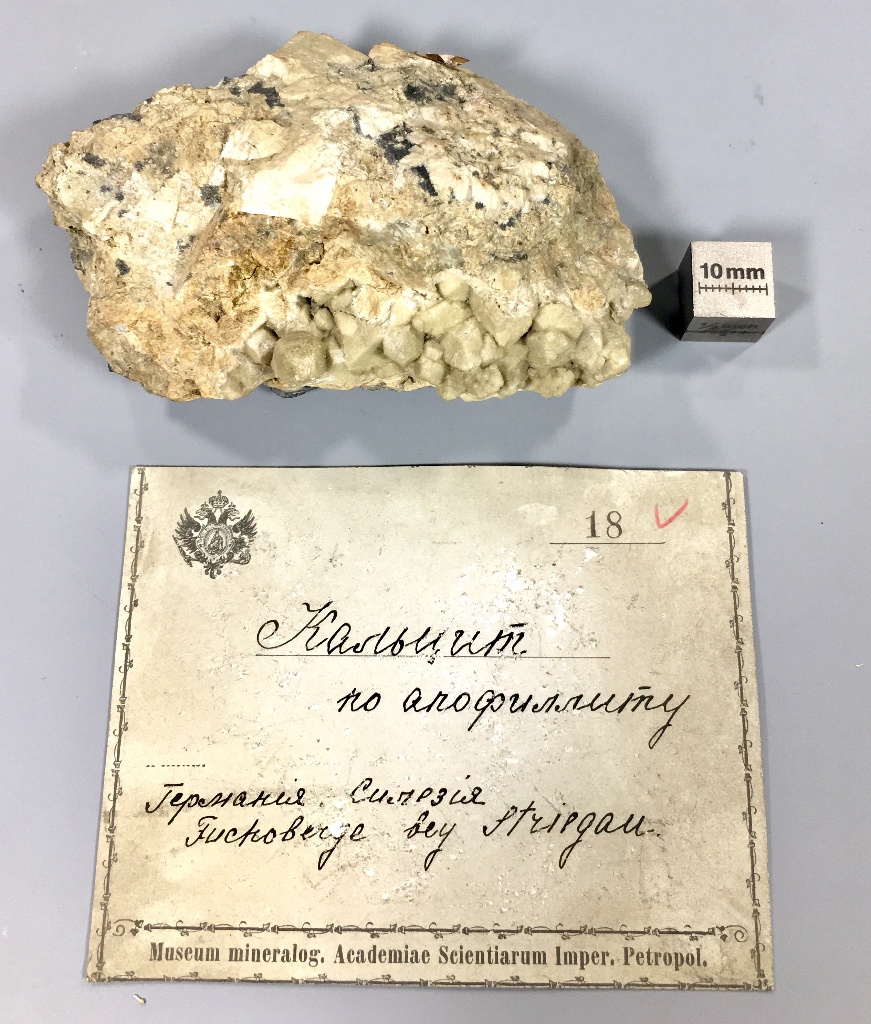 10 mm
18
Кальцит
по апофиллиту
Германія. Силезія
Fuchsberge bey Striegau.
Museum mineralog. Academiae Scientiarum Imper. Petropol.